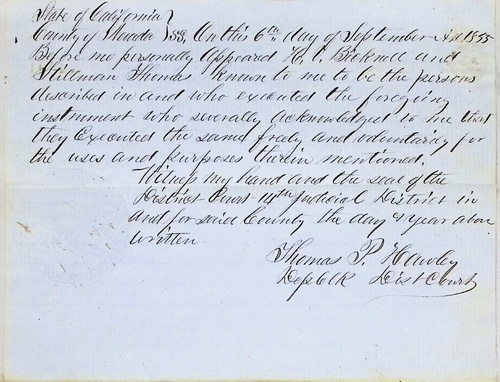 State of California }
County of Nevada } SS, On this 6th day of September AD 1855
Before me personally Appeared H. C. Bicknell and
Stillman Thomas known to me to be the persons
described in and who executed the foregoing
instrument who severally acknowledged to me that
they Executed the same freely and voluntarily for
the uses and purposes therein mentioned.
Witness my hand and the seal of the
District Court 14th Judicial District in
and for said County the day & year above
written
Thomas P. Hawley
Dep Clk Dist Court